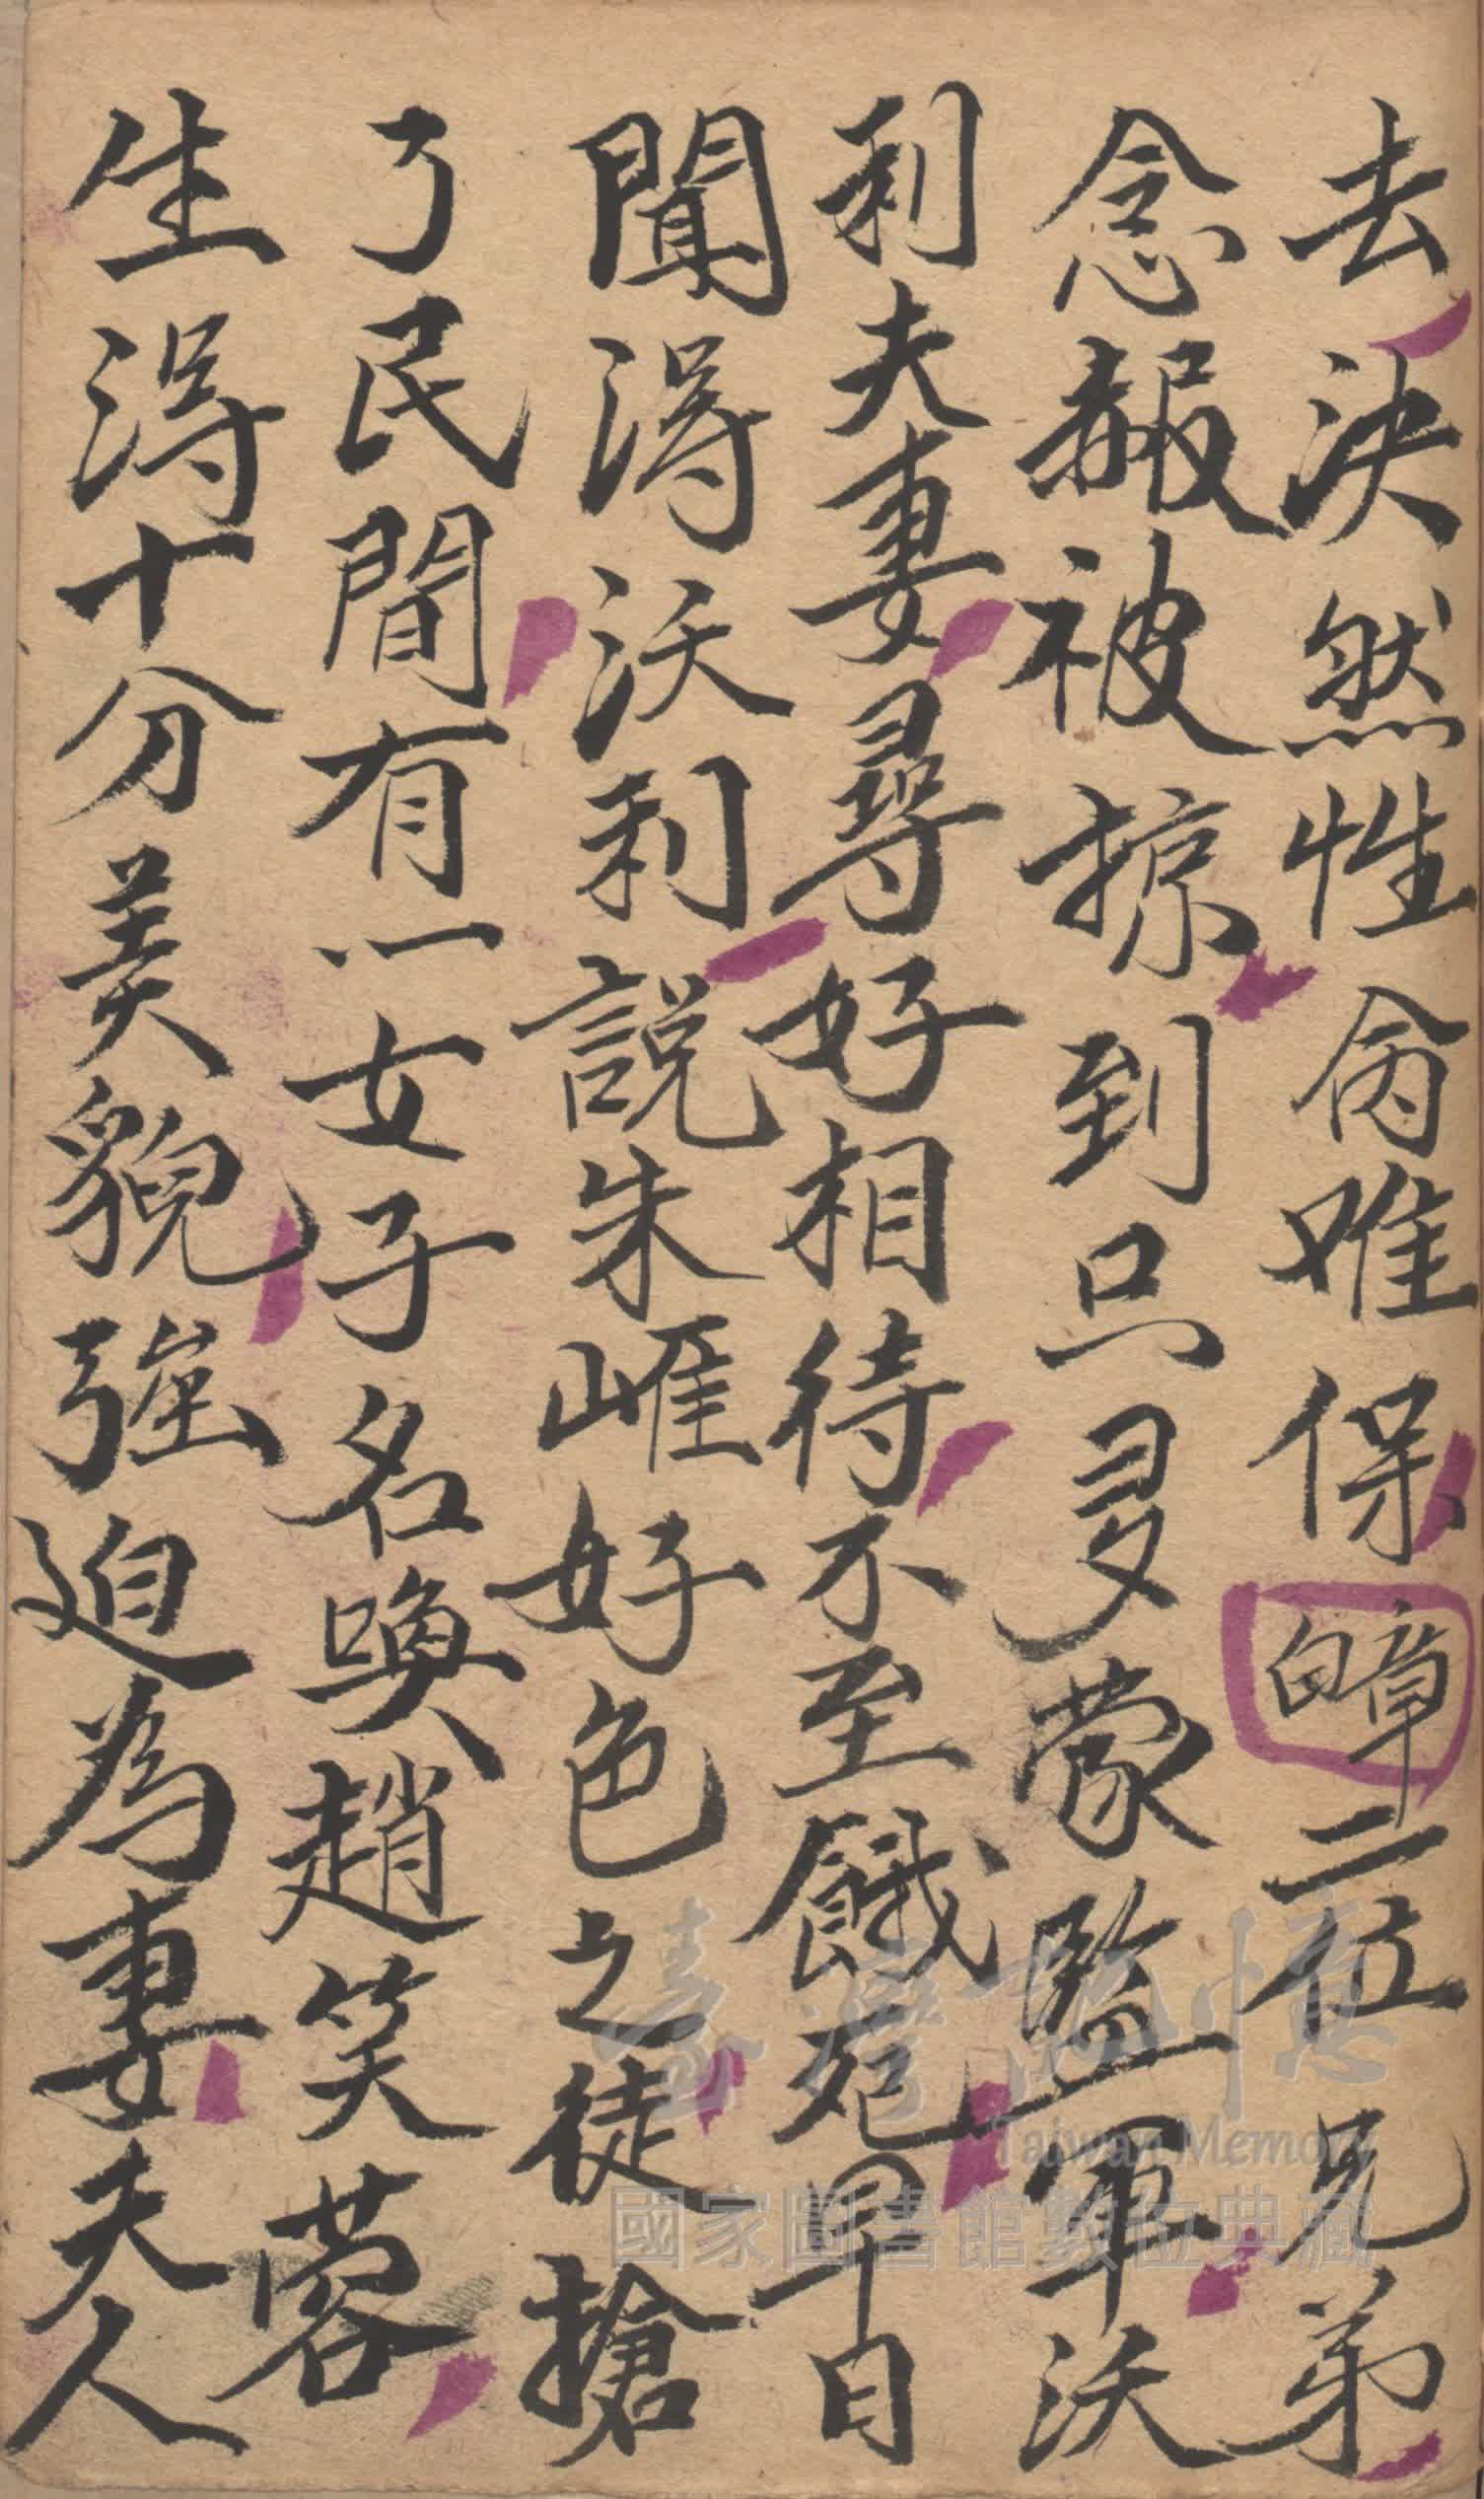 去決然性命难保白章二位兄弟
念報被掠到只多蒙監軍沃
利夫妻尋好相待不至餓死早日
聞得沃利說朱崕好色之徒搶
了民間有一女子名喚趙笑蓉
生得十分美貌強迫為妻夫人
臺灣記憶
Taiwan Memory
國家圖書館數位典藏